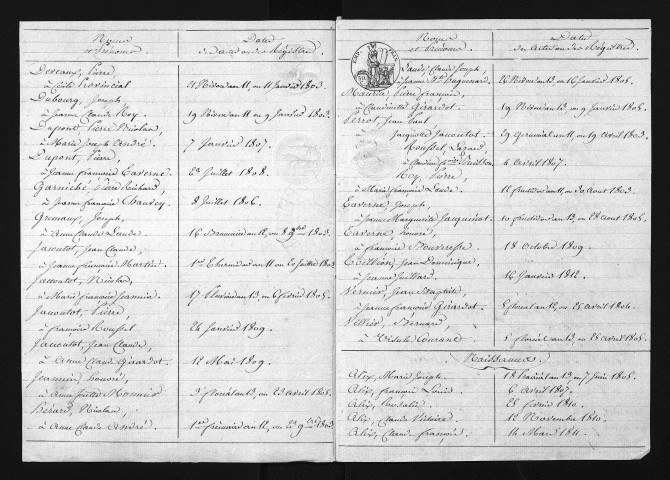 Noms
et Prénoms
Date
des actes ou des Registres
Deveaux, Pierre
à Cécile Provincial
21 Nivose an 11, ou 11 Janvier 1803.
Dubourg, Joseph,
à Jeanne Claude Roy.
19 Nivose an 11 ou 9 Janvier 1803.
Dupont, Pierre Nicolas,
à Marie Joseph André.
7 Janvier 1807.
Dupont, Pierre,
à Jeanne Françoise Taverne.
Juillet 1808.
Garniche, Pierre Richard,
à Jeanne Françoise Chauvey.
8 Juillet 1806.
Grimaux, Joseph,
à Anne Claude Laude.
16 Brumaire an 12, ou 8 9bre 1803.
Jacoutot, Jean Claude,
à Jeanne Françoise Martin.
1er Thermidor an 11 ou 20 Juillet 1803
Jacoutot, Nicolas,
à Marie Françoise Jeannin.
17 Pluviose an 13, ou 6 février 1805.
Jacoutot, Pierre,
à Françoise Roussel
24 Janvier 1809.
Jacoutot, Jean Claude,
à Anne Claude Girardot.
12 Mai 1809.
Jeannin, honoré,
à Monnier
3 floréal an 13, ou 23 avril 1805.
Bérard, Nicolas,
à Anne Claude André.
1er frimaire an 12, ou 23 9bre 1803
Noms
et Prénoms
Date
des actes ou des Registres.
Laude, Claude Joseph,
à Jeanne Huguenard.
26 Nivose an 13 ou 16 Janvier 1805.
Maurice, Pierre François,
à Claudinette Girardot.
19 Nivose an 13 ou 9 Janvier 1805.
Perrot, Jean Paul
à Jacquotte Jacoutot.
29 Germinal an 11, ou 19 avril 1803
Roussel, Lazare,
à Claudine
4 avril 1807.
Roy, Pierre,
à Marie Françoise Laude.
Taverne, Joseph,
à Jeanne Marguerite Jacquinot.
10 fructidor an 13, ou 28 aout 1805.
Taverne, honoré,
à Françoise Bouveresse.
18 Octobre 1809.
Thillion, Jean Dominique,
à Jeanne Juillard.
16 Janvier 1812.
Vernier, Jean Baptiste,
à Jeanne Françoise Girardot.
5 floréal an 12, ou 25 avril 1804.
Vernier, Bernard,
à Courant.
5 floréal an 13, ou 25 avril 1805.
Naissances.
Alix, Marie Joseph.
18 Prairial an 13 ou 7 Juin 1805.
Alix, François Louis.
6 avril 1807.
Alix, Rosalie.
25 février 1810.
Alix, Claude Victoire.
12 Novembre 1810.
Alix, Claude François.
14 Mars 1811.